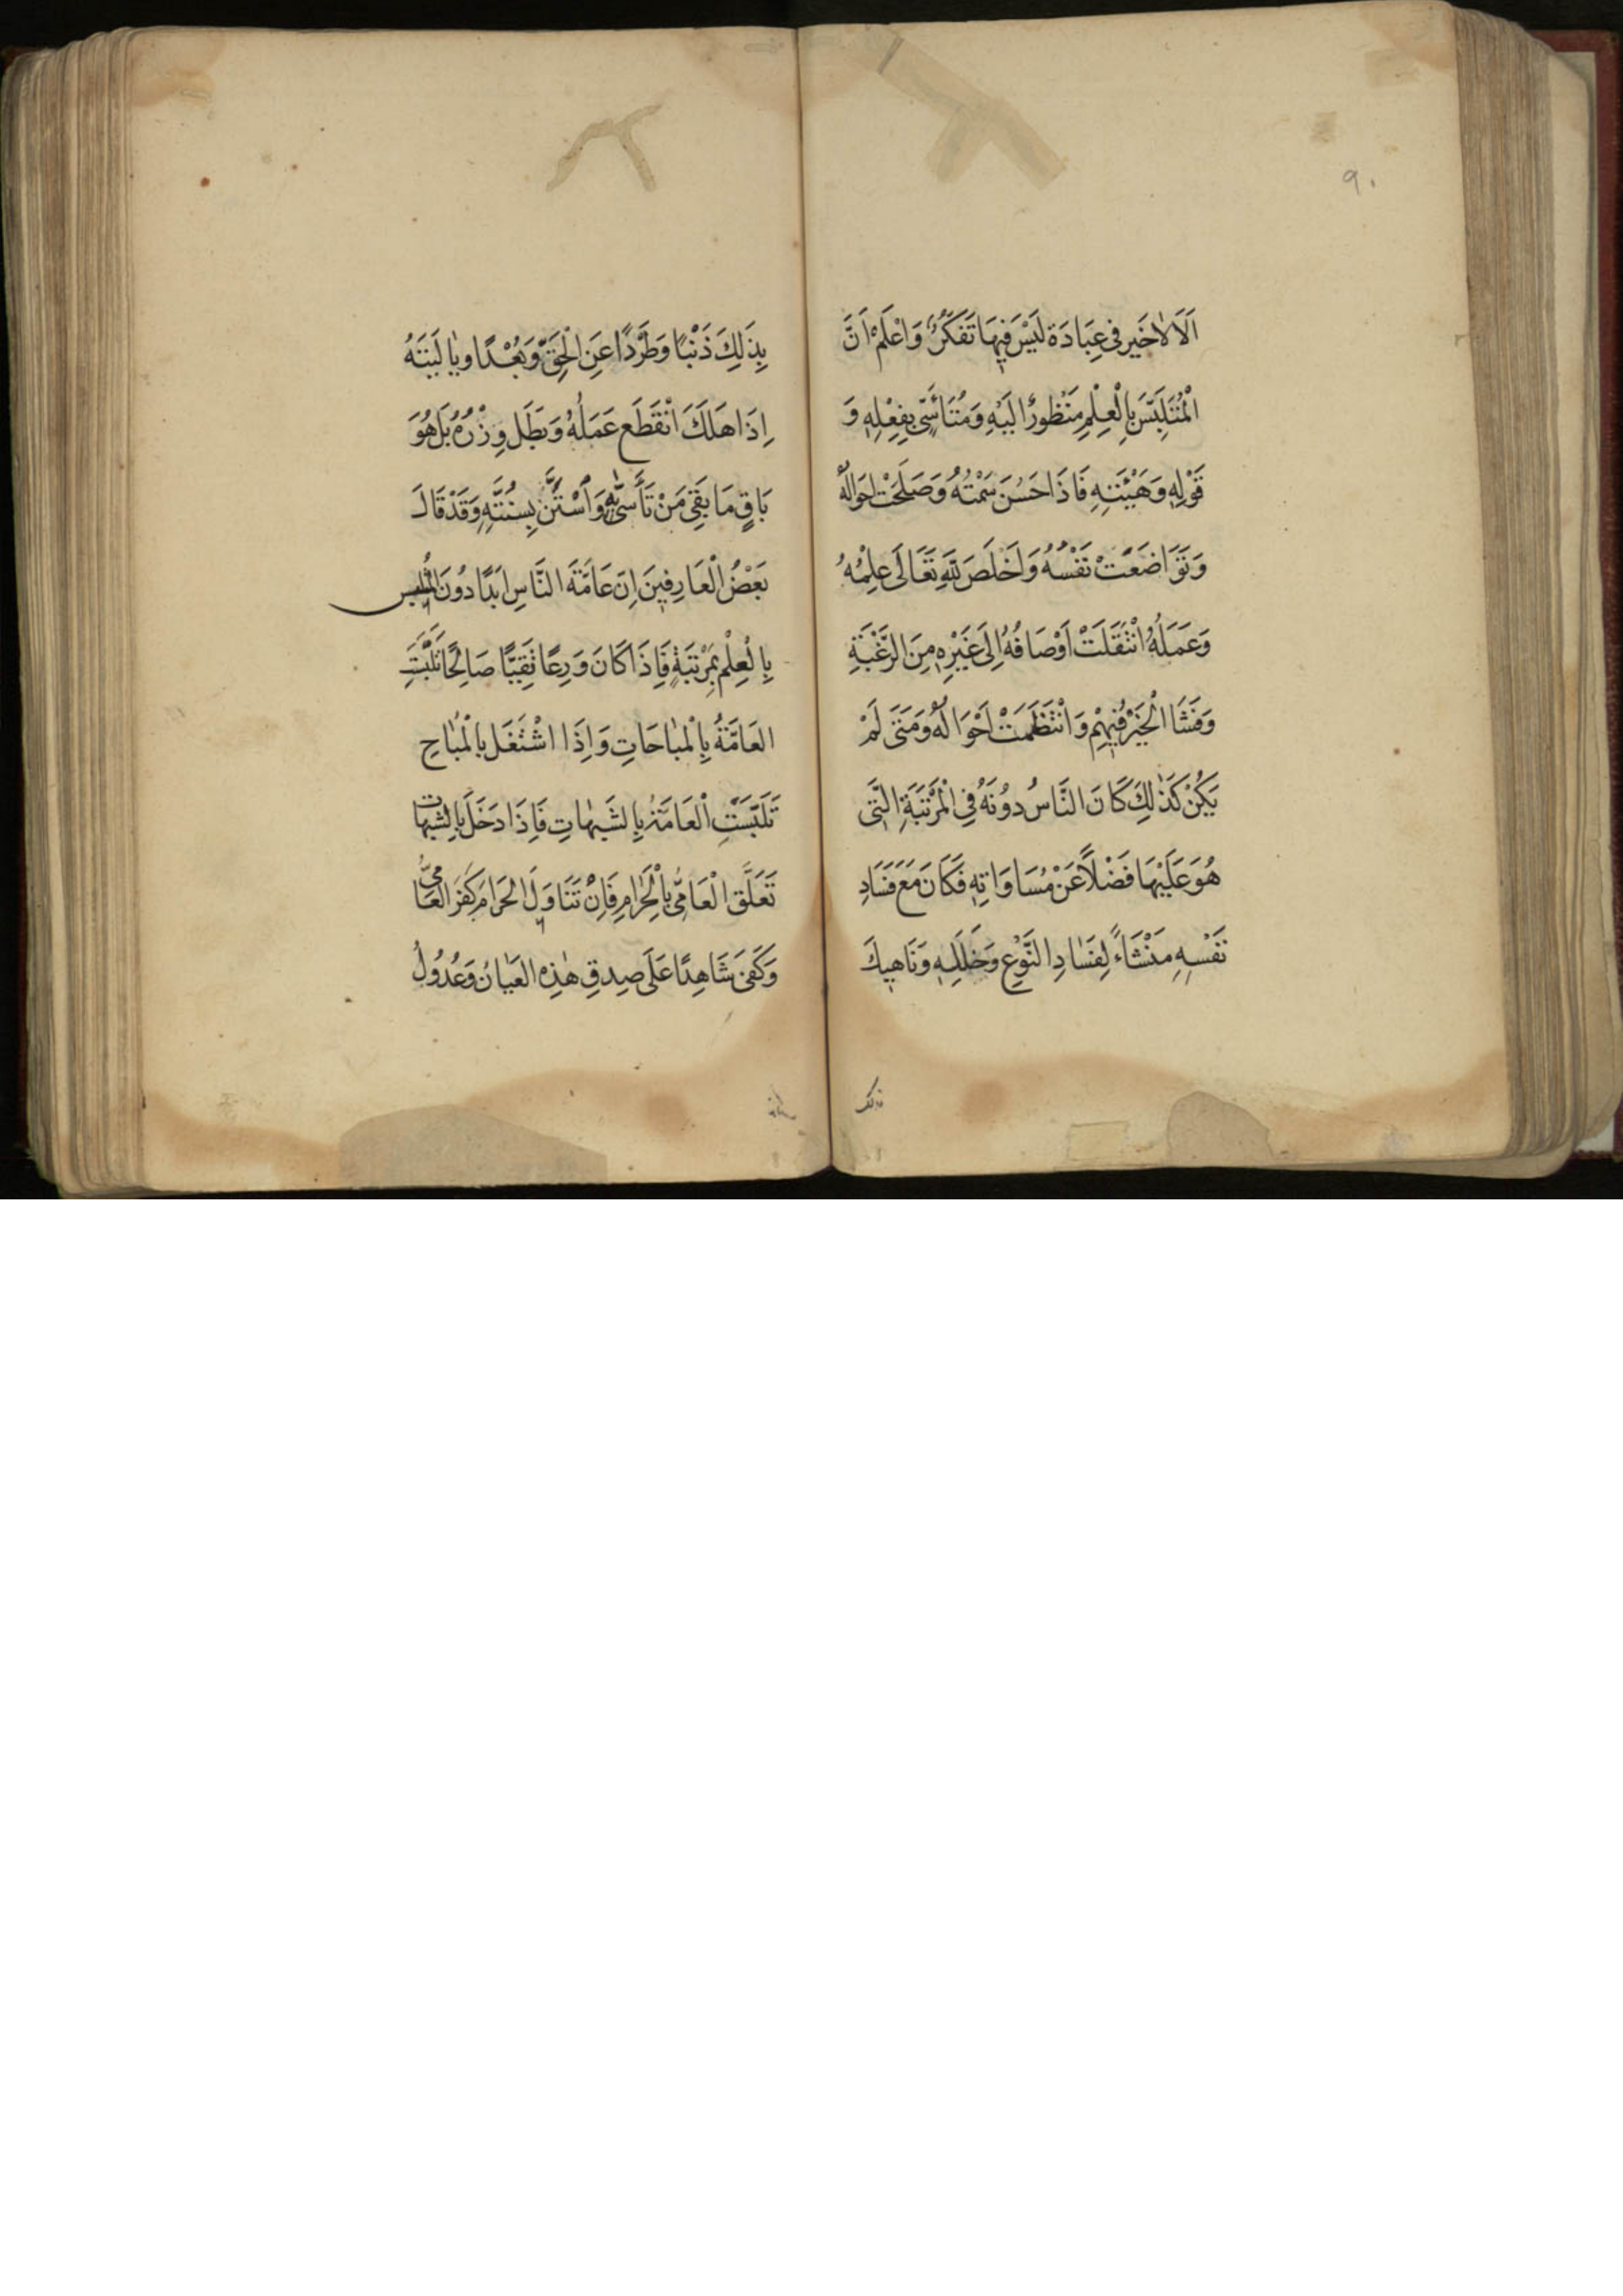 ٩٠
اَلَا لَاخَيرَ فى عِبَادَة لَيْسَ فِيهَا تَفَكُّرٌ وَاعْلَمْ اَنَّ
الْمُتَلَبِّسَ بِالْعِلْمِ مَنْظُورٌ اِلَيْهِ وَمُتَاَسّىً بِفِعْلِهِ وَ
قَوْلِهِ وَهَيْئَتِهِ فَاِذَا حَسُنَ سَمْتُهُ وَصَلَحَتْ اَحوَالُهُ
وَتَوَاضَعَتْ نَفْسُهُ وَاَخْلَصَ لِلّٰهِ تَعَالَى عِلْمُهُ
وَعَمَلُهُ انْتَقَلَتْ اَوْصَافُهُ اِلَى غَيْرِهِ مِنَ الرَّغْبَةِ
وَفَشَا الْخَيْرُ فِيهِمْ وَانْتَظَمَتْ اَحْوَالُهُ وَمَتَى لَمْ
يَكُنْ كَذٰلِكَ كَانَ النَّاسُ دُونَهُ فِى الْمَرْتَبَةِ الَّتى
هُوَ عَلَيْهَا فَضْلًا عَنْ مُسَاوَاتِهِ فَكَانَ مَعَ فَسَادِ
نَفْسِهِ مَنْشَاءً لِفَسَادِ النَّوْعِ وَخَلَلِهِ وَنَاهِيكَ
بِذَلِكَ ذَنْبًا وَطَرْدًا عَنِ الْحَقِّ وَبُعْدًا وَيٰا لَيْتَهُ
اِذَا هَلَكَ انْقَطَعَ عَمَلُهُ وَبَطَلَ وِزْرُهُ بَلْ هُوَ
بَاقٍ مَا بَقِىَ مَنْ تَأَسّىٰ بِهِ وَاسْتَنَّ بِسُنَّتِهِ وَقَدْ قَالَ
بَعْضُ الْعَارِفِينَ اِنَّ عَامَّةَ النَّاسِ اَبَدًا دُونَ المُتَلَبِّس
بِالْعِلْمِ بِمَرْتَبَةٍ فَاِذَا كَانَ وَرِعًا تَقِيًّا صَالِحًا تَلَبَّسَتِ
العَامَّةُ بِالْمبٰاحَاتِ وَاِذَا اشْتَغَلَ بِالْمُبٰاحِ
تَلَبَّسَتِ الْعَامَّةُ بِالشَّبهٰاتِ فَاِذَا دَخَلَ بِالشبهات
تَعَلَّقَ الْعَامّىُ بِالْحَرٰامِ فَاِنْ تَنَاوَلَ الحَرَامَ كَفَرَ العَامّىُّ
وَكَفىٰ شَاهِدًا عَلَى صِدقِ هٰذِهِ العَيٰانُ وَعُدُولُ